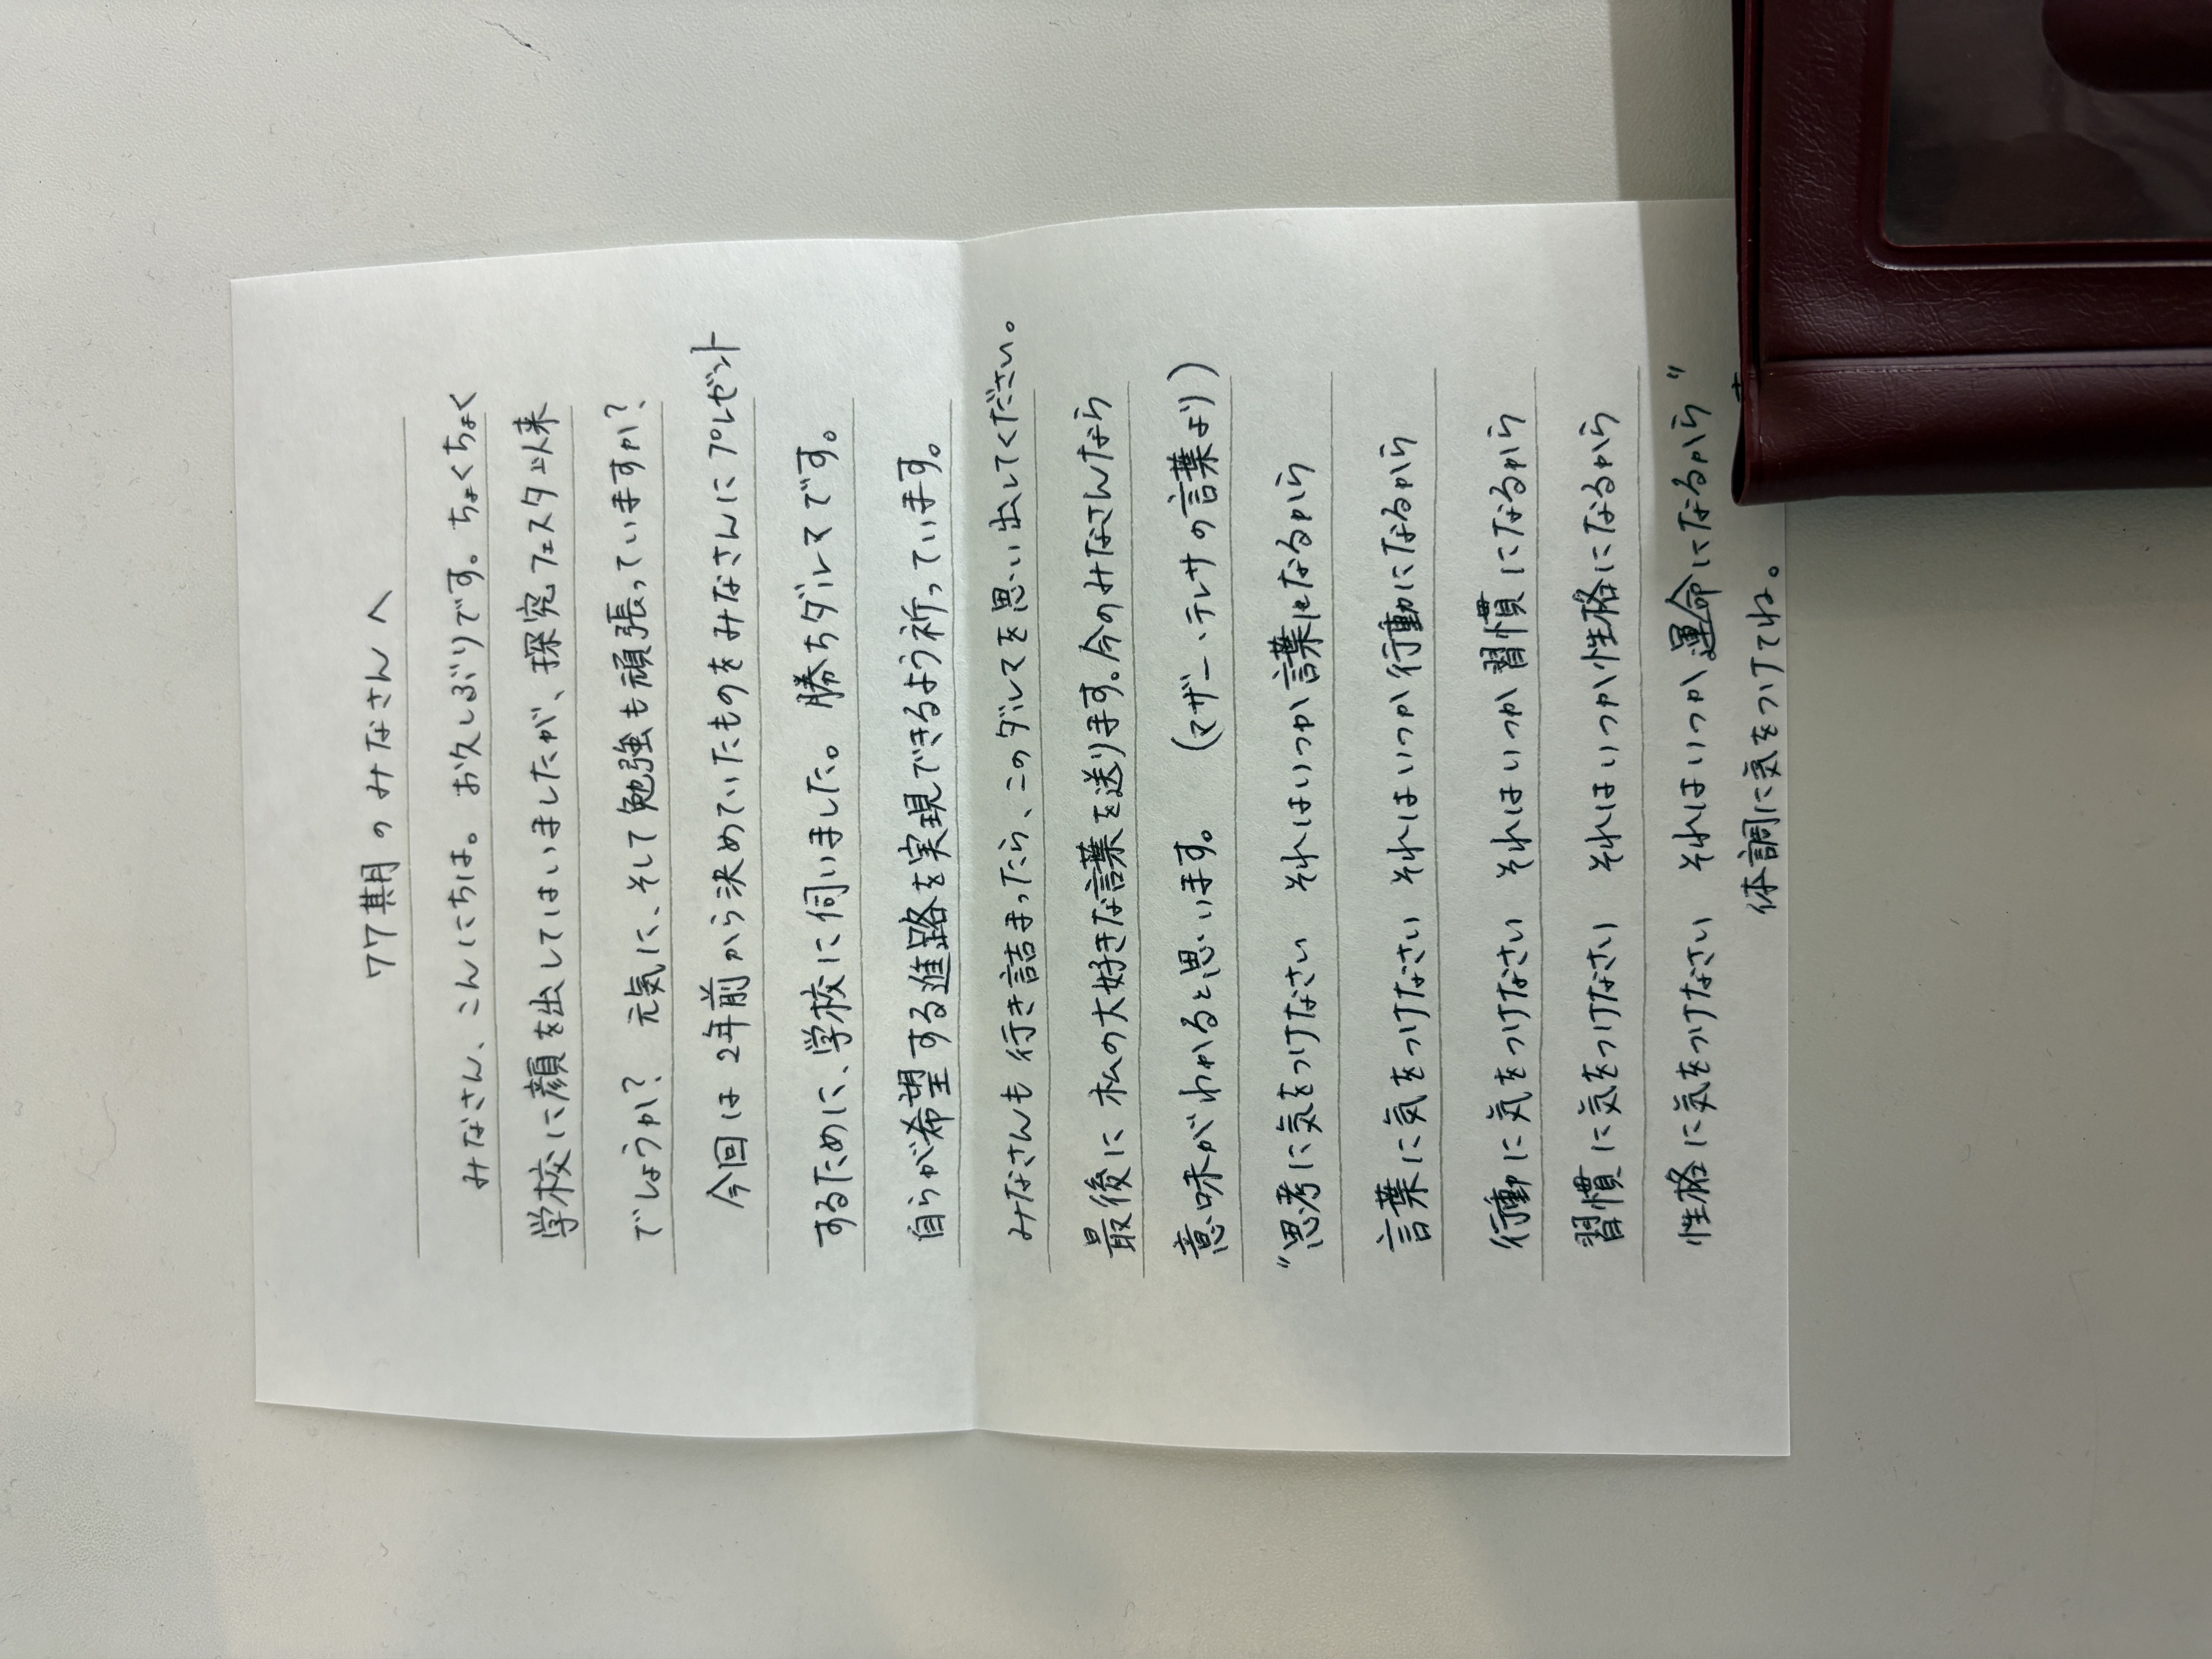 77期のみなさんへ
みなさん、こんにちは。お久しぶりです。ちょくちょく
学校に顔を出してはいましたが、探究フェスタ以来
でしょうか？元気に、そして勉強も頑張っていますか？
今回は2年前から決めていたものをみなさんにプレゼント
するために、学校に伺いました。勝ちダルマです。
自らが希望する進路を実現できるよう祈っています。
みなさんも行き詰まったら、このダルマを思い出してください。
最後に私の大好きな言葉を送ります。今のみなさんなら
意味がわかると思います。（マザー・テレサの言葉より）
"思考に気をつけなさい それはいつか言葉になるから
言葉に気をつけなさい それはいつか行動になるから
行動に気をつけなさい それはいつか習慣になるから
習慣に気をつけなさい それはいつか性格になるから
性格に気をつけなさい それはいつか運命になるから"
体調に気をつけてね。